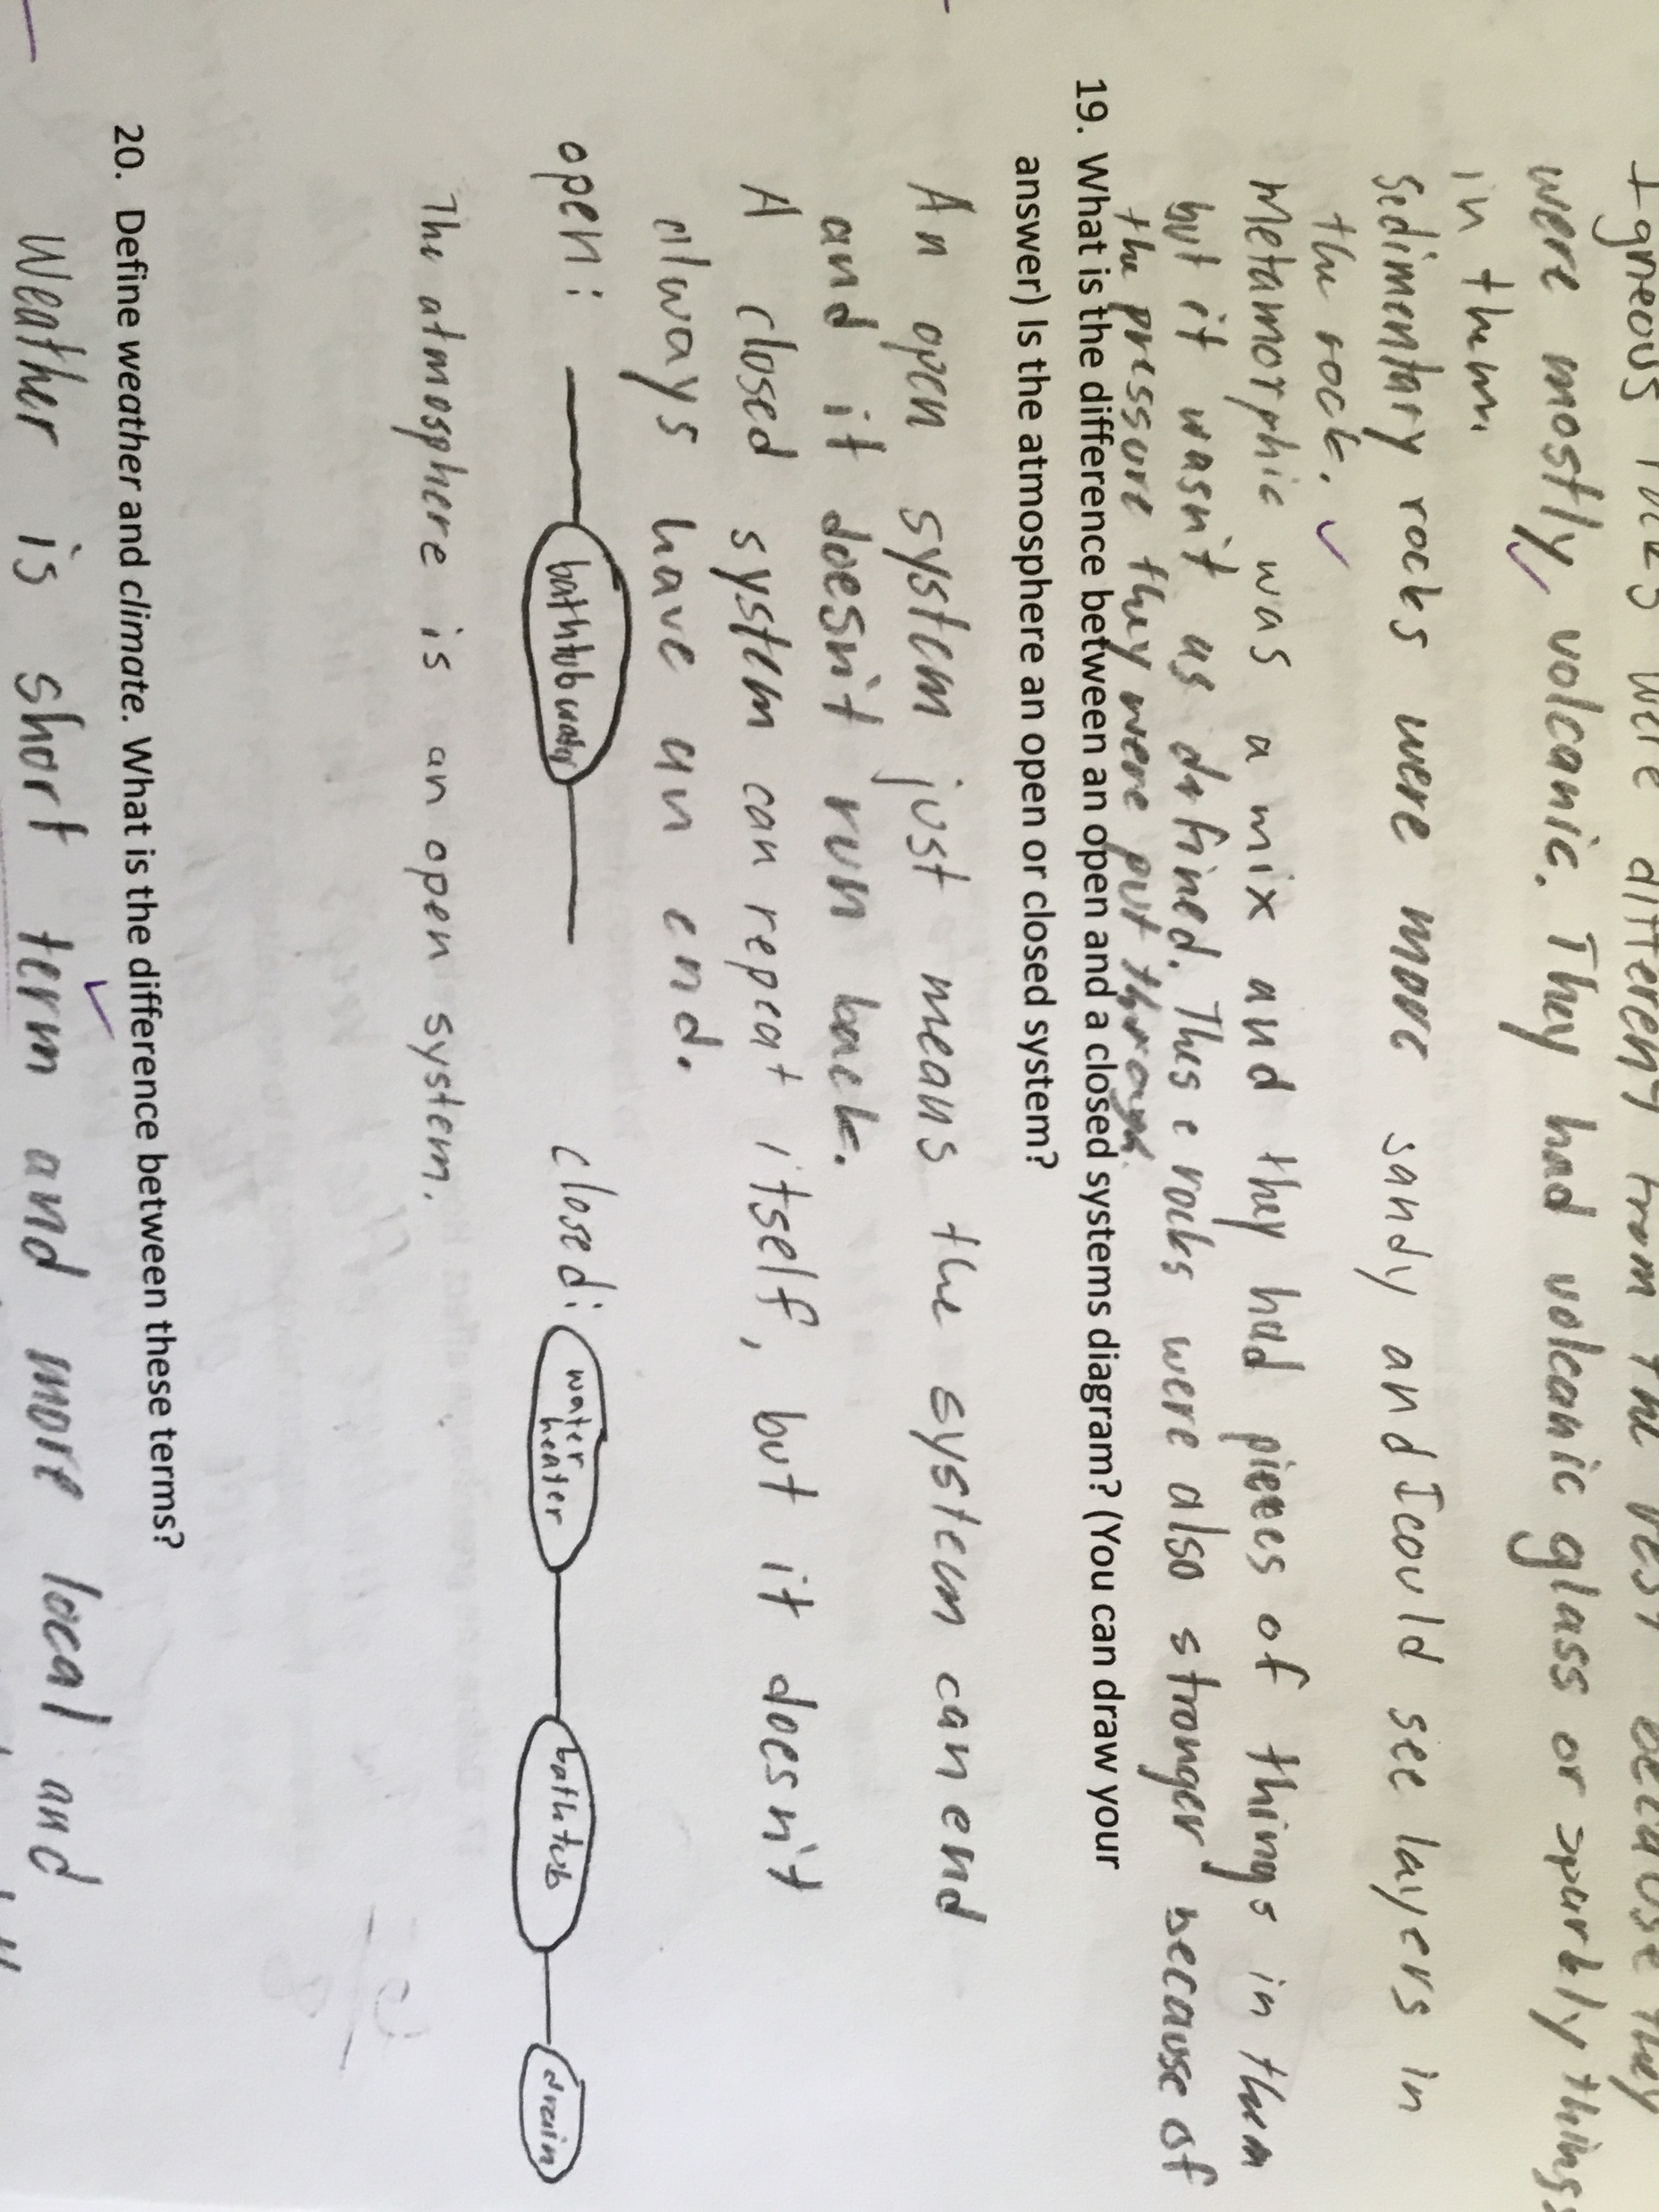 Igneous rocks were different from the rest because they
were mostly volcanic. They had volcanic glass or sparkly things
in them.
Sedimentary rocks were more sandy and I could see layers in
the rock.
Metamorphic was a mix and they had pieces of things in them
but it wasn't as defined. These rocks were also stronger because of
the pressure they were put through.
19. What is the difference between an open and a closed systems diagram? (You can draw your
answer) Is the atmosphere an open or closed system?
An open system just means the system can end
and it doesn't run back.
A closed system can repeat itself, but it doesn't
always have an end.
open: bathtub water closed: water heater bathtub drain
The atmosphere is an open system.
20. Define weather and climate. What is the difference between these terms?
Weather is short term and more local and